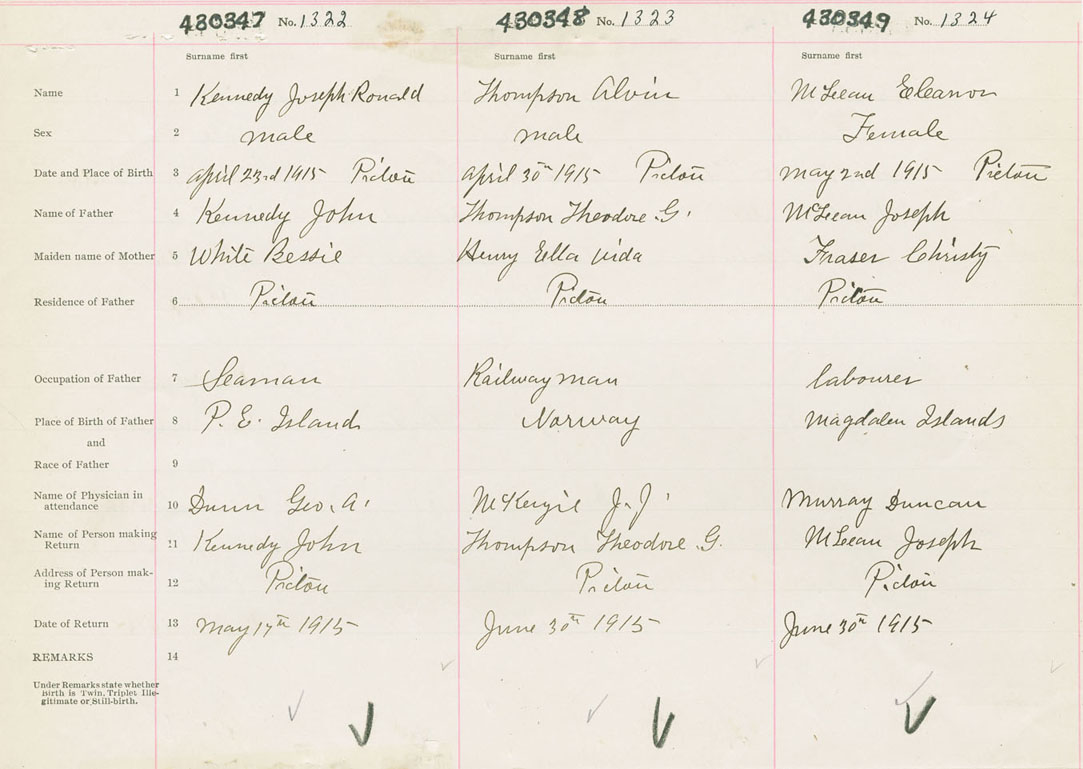 430347 No. 1322 430348 No. 1323 430349 No. 1324
Surname first Surname first Surname first
Name 1 Kennedy Joseph Ronald Thompson Alvin McLean Eleanor
Sex 2 male male Female
Date and Place of Birth 3 April 23rd 1915 Pictou April 30th 1915 Pictou May 2nd 1915 Pictou
Name of Father 4 Kennedy John Thompson Theodore G. McLean Joseph
Maiden name of Mother 5 White Bessie Henry Ella Vida Fraser Christy
Residence of Father 6 Pictou Pictou Pictou
Occupation of Father 7 Seaman Railway man labourer
Place of Birth of Father 8 P. E. Island Norway Magdalen Islands
and
Race of Father 9
Name of Physician in
attendance 10 Dunn Geo. A. McKenzie J. J. Murray Duncan
Name of Person making
Return 11 Kennedy John Thompson Theodore G. McLean Joseph
Address of Person mak-
ing Return 12 Pictou Pictou Pictou
Date of Return 13 May 17th 1915 June 30th 1915 June 30th 1915
REMARKS 14
Under Remarks state whether
Birth is Twin, Triplet Ille-
gitimate or Still-birth.